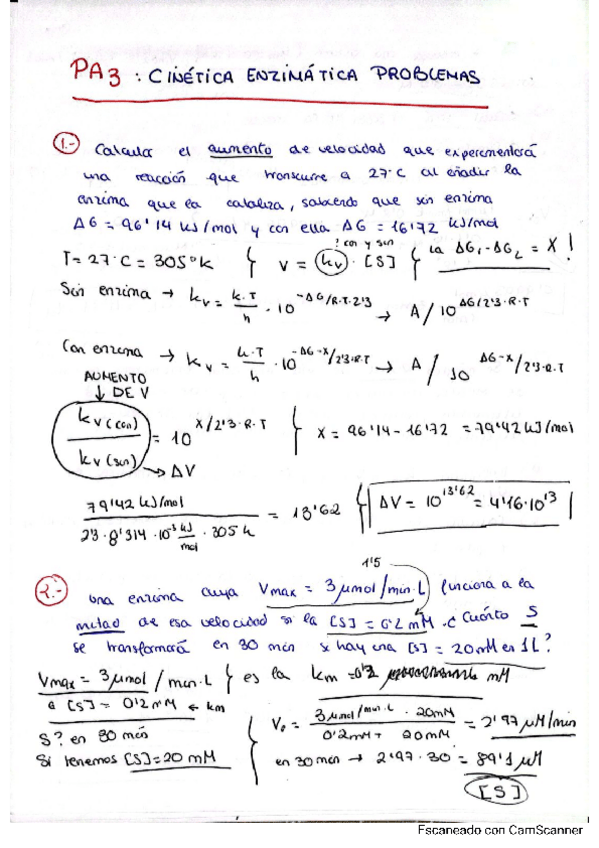 PA3: CINÉTICA ENZIMÁTICA PROBLEMAS
1.- Calcular el aumento de velocidad que experimentará
una reacción que transcurre a 27°C al añadir la
enzima que la cataliza, sabiendo que sin enzima
ΔG = 96'14 kJ/mol y con ella ΔG = 16'72 kJ/mol
? con y sin
T= 27°C = 305°K { V = kv · [S] { la ΔG₁-ΔG₂ = X !
Sin enzima → kv = k·T/h · 10^-ΔG/R·T·2'3 → A/10^ΔG/2'3·R·T
Con enzima → kv = k·T/h · 10^-ΔG-X/2'3·R·T → A/10^ΔG-X/2'3·R·T
AUMENTO
↓ DE V
kv(con)/kv(sin) = 10^X/2'3·R·T { X = 96'14 - 16'72 = 79'42 kJ/mol
→ ΔV
79'42 kJ/mol / 2'3·8'314·10^-3 kJ/mol · 305k = 13'62 { ΔV = 10^13'62 = 4'16·10^13
1'5
2.- Una enzima cuya Vmax = 3 μmol/min·L funciona a la
mitad de esa velocidad si la [S] = 0'2 mM. ¿Cuánto S
se transformará en 30 min si hay una [S] = 20mM en 1L?
Vmax = 3 μmol/min·L { es la km = 0'2 mM
a [S] = 0'2 mM ← km
V₀ = 3 μmol/min·L · 20mM / 0'2mM + 20mM = 2'97 μM/min
S? en 30 min
Si tenemos [S]=20 mM
en 30 min → 2'97·30 = 89'1 μM
[S]
Escaneado con CamScanner